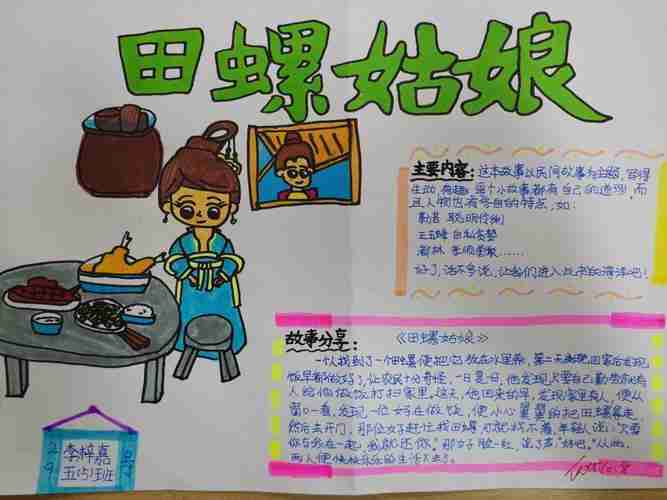 田螺姑娘
主要内容：这本故事以民间故事为主题，写得
生动、有趣，每个小故事都有自己的道理，而
且人物也有各自的特点，如：
勤若 聪明伶俐
王五嫂 自私贪婪
好了，话不多说，让我们进入此书的海洋吧！
故事分享： 《田螺姑娘》
一个人找到了一个田螺，便把它放在水里养，第二天
饭早都做好了，让农民十分奇怪，一日复一日，他发现只要自己勤劳就有
人给他做饭打扫家里。这天，他回来的早，发现家里有人，便从
窗口一看，发现一位好在做饭，便小心翼翼的把田螺拿走，
然后去开门，那位女子赶快找田螺可就找不着，年轻人说："只要
你与我在一起，我就还你。"那女子脸一红，说了声"好吧。"从此，
两人便快快乐乐的生活下去了。
李梓嘉
五(5)班
29
号